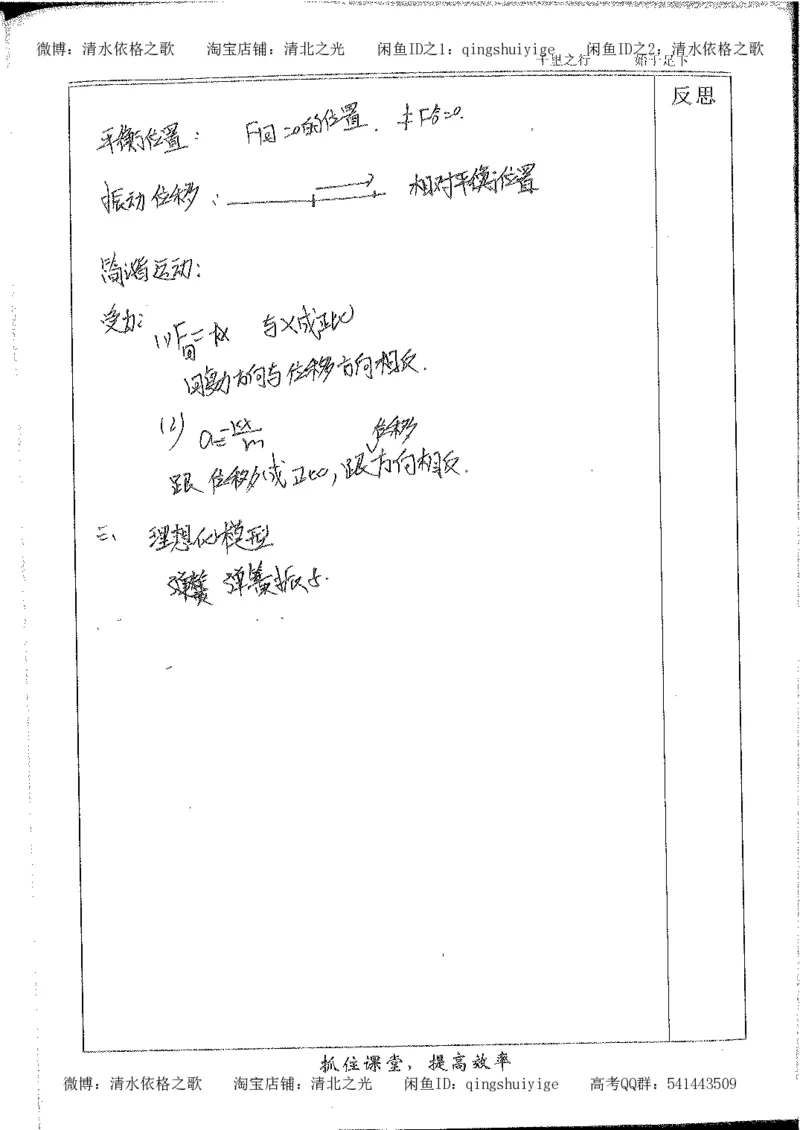 微博：清水依格之歌 淘宝店铺：清北之光 闲鱼ID之1：qingshuiyige 闲鱼ID之2：清水依格之歌
千里之行 始于足下
反思
平衡位置： F回=0的位置. ≠F合=0.
振动位移： 相对平衡位置
简谐运动：
受力：
(1) F回=-kx 与x成正比
回复力方向与位移方向相反.
(2) a=-kx/m
跟位移成正比，跟位移方向相反.
三、理想化模型
弹簧振子.
抓住课堂，提高效率
微博：清水依格之歌 淘宝店铺：清北之光 闲鱼ID：qingshuiyige 高考QQ群：541443509